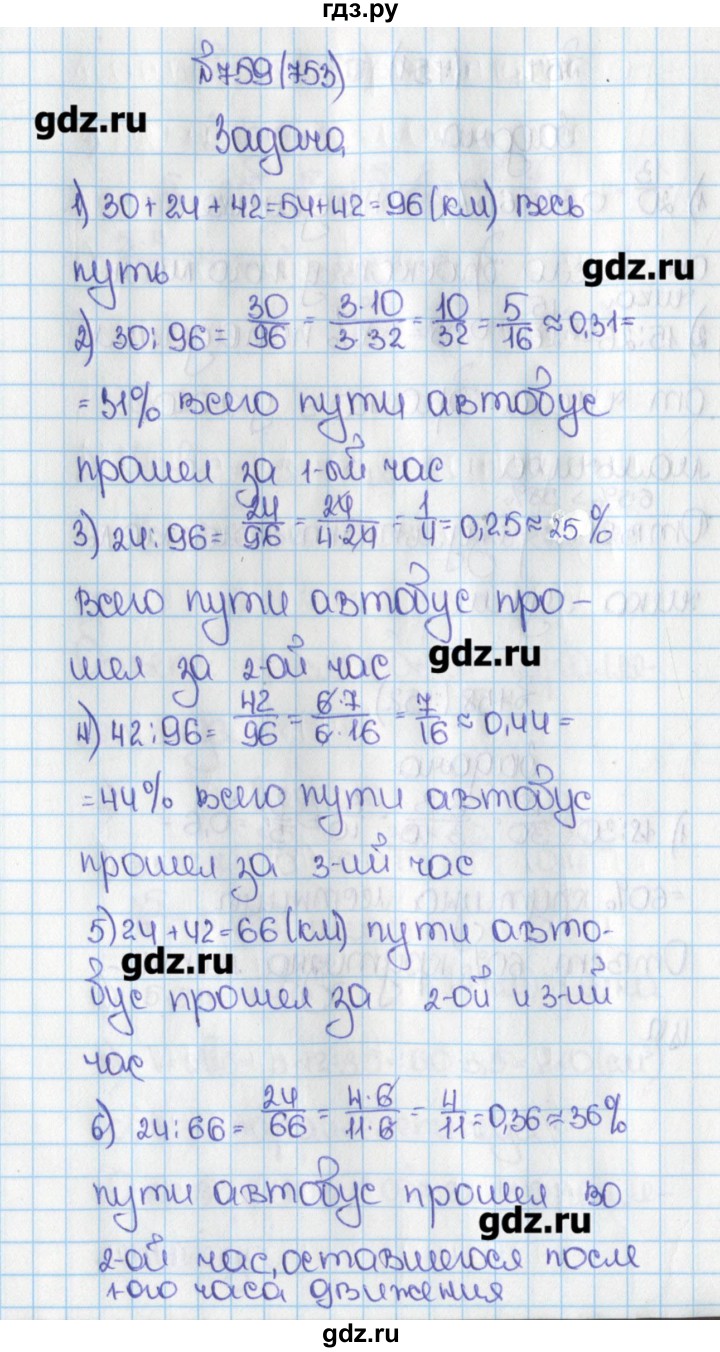 гдз.ру
№759(753)
gdz.ru
Задача
1) 30+24+42=54+42=96(км) весь
gdz.ru
путь
2) 30:96= 30/96 = 3·10/3·32 = 10/32 = 5/16 ≈ 0,31=
=31% всего пути автобус
прошел за 1-ый час
3) 24:96= 24/96 = 24/4·24 = 1/4 = 0,25 ≈ 25%
всего пути автобус про-
шел за 2-ой час
gdz.ru
4) 42:96= 42/96 = 6·7/6·16 = 7/16 ≈ 0,44=
=44% всего пути автобус
прошел за 3-ий час
5) 24+42=66(км) пути авто-
gdz.ru
бус прошел за 2-ой и 3-ий
час
6) 24:66= 24/66 = 4·6/11·6 = 4/11 = 0,36 ≈ 36%
пути автобус прошел во
gdz.ru
2-ой час, оставшегося после
1-ого часа движения
gdz.ru